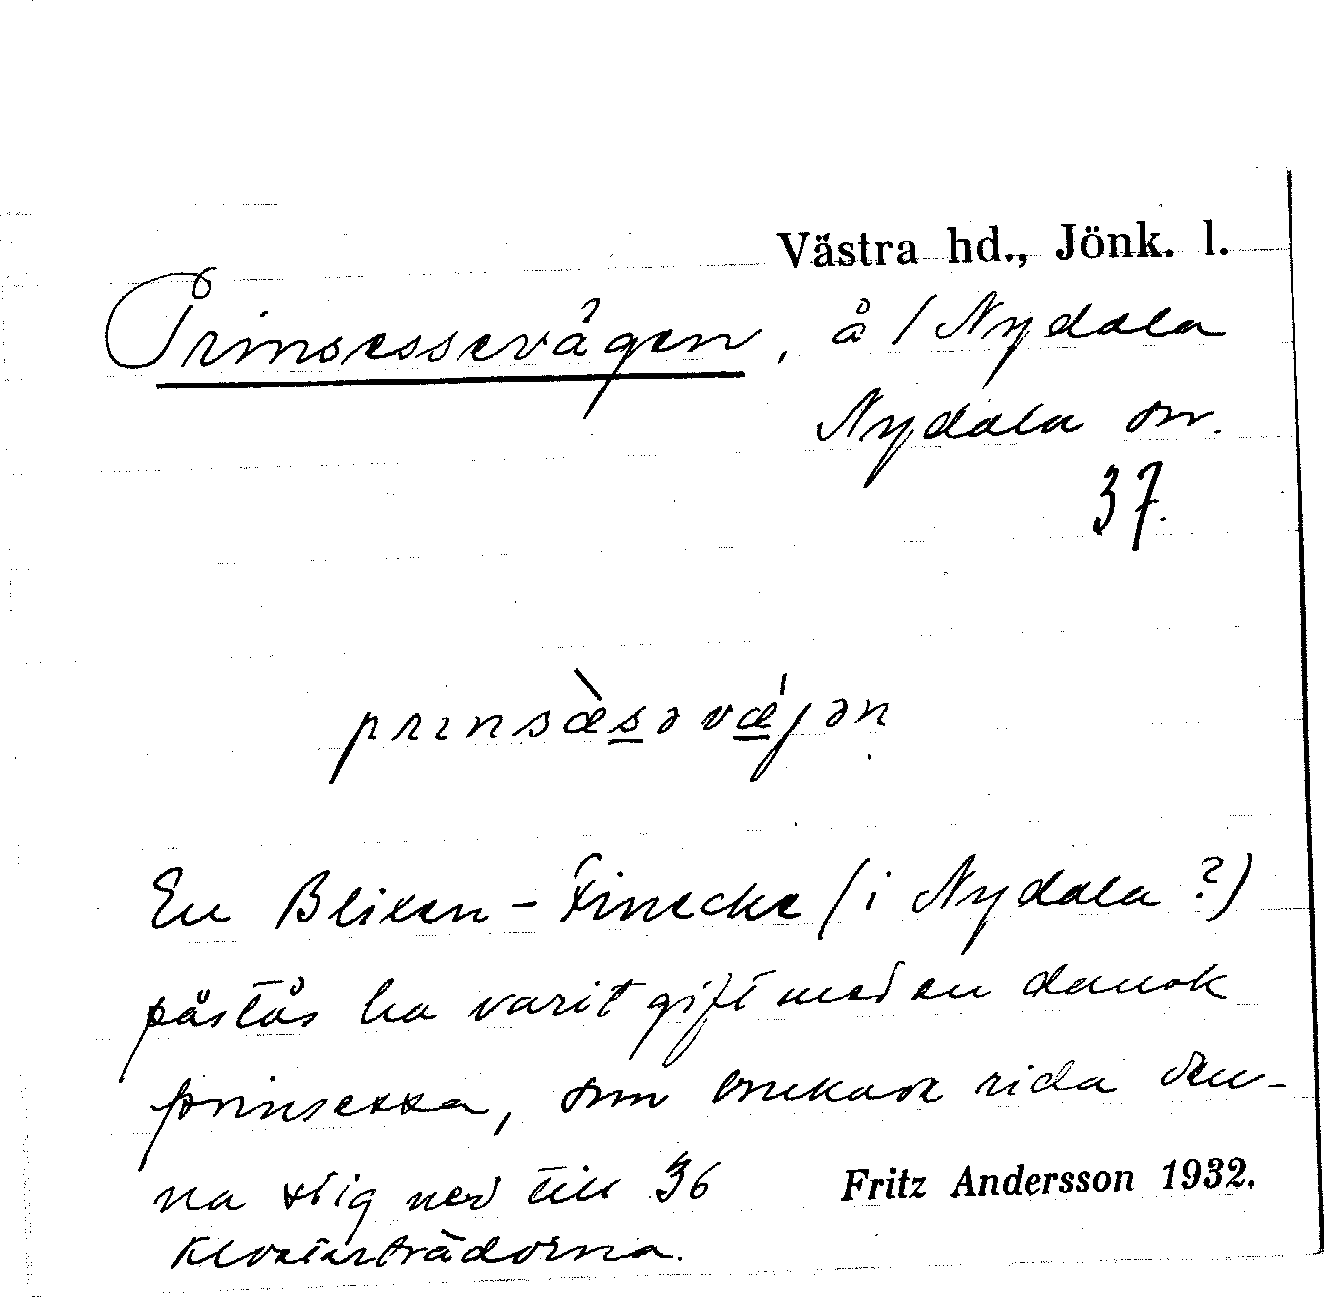 Västra hd., Jönk. l.
Prinsessevägen, å / Nydala
Nydala sn.
37.
prɪnsæ̀səvǽjən
En Blixen-Finecke (i Nydala ?)
påstås ha varit gift med en dansk
prinsessa, som brukade rida den-
na stig ned till 36 Fritz Andersson 1932.
Klosterträdorna.